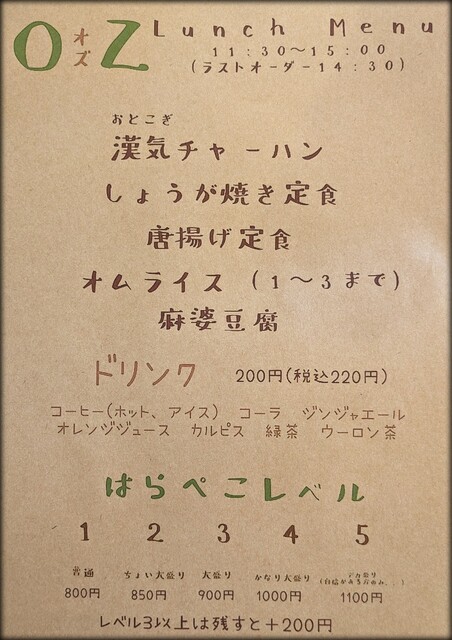 OオズZ Lunch Menu
11:30～15:00
(ラストオーダー14:30)
おとこぎ
漢気チャーハン
しょうが焼き定食
唐揚げ定食
オムライス (1～3まで)
麻婆豆腐
ドリンク 200円(税込220円)
コーヒー(ホット、アイス) コーラ ジンジャエール
オレンジジュース カルピス 緑茶 ウーロン茶
はらぺこレベル
1 2 3 4 5
普通 ちょい大盛り 大盛り かなり大盛り デカ盛り
(自信がある方のみ、、)
800円 850円 900円 1000円 1100円
レベル3以上は残すと+200円